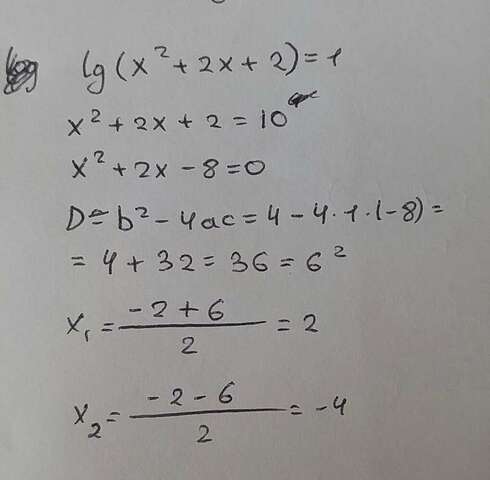 lg(x² + 2x + 2) = 1
x² + 2x + 2 = 10
x² + 2x - 8 = 0
D = b² - 4ac = 4 - 4 · 1 · (-8) =
= 4 + 32 = 36 = 6²
x₁ = (-2 + 6)/2 = 2
x₂ = (-2 - 6)/2 = -4